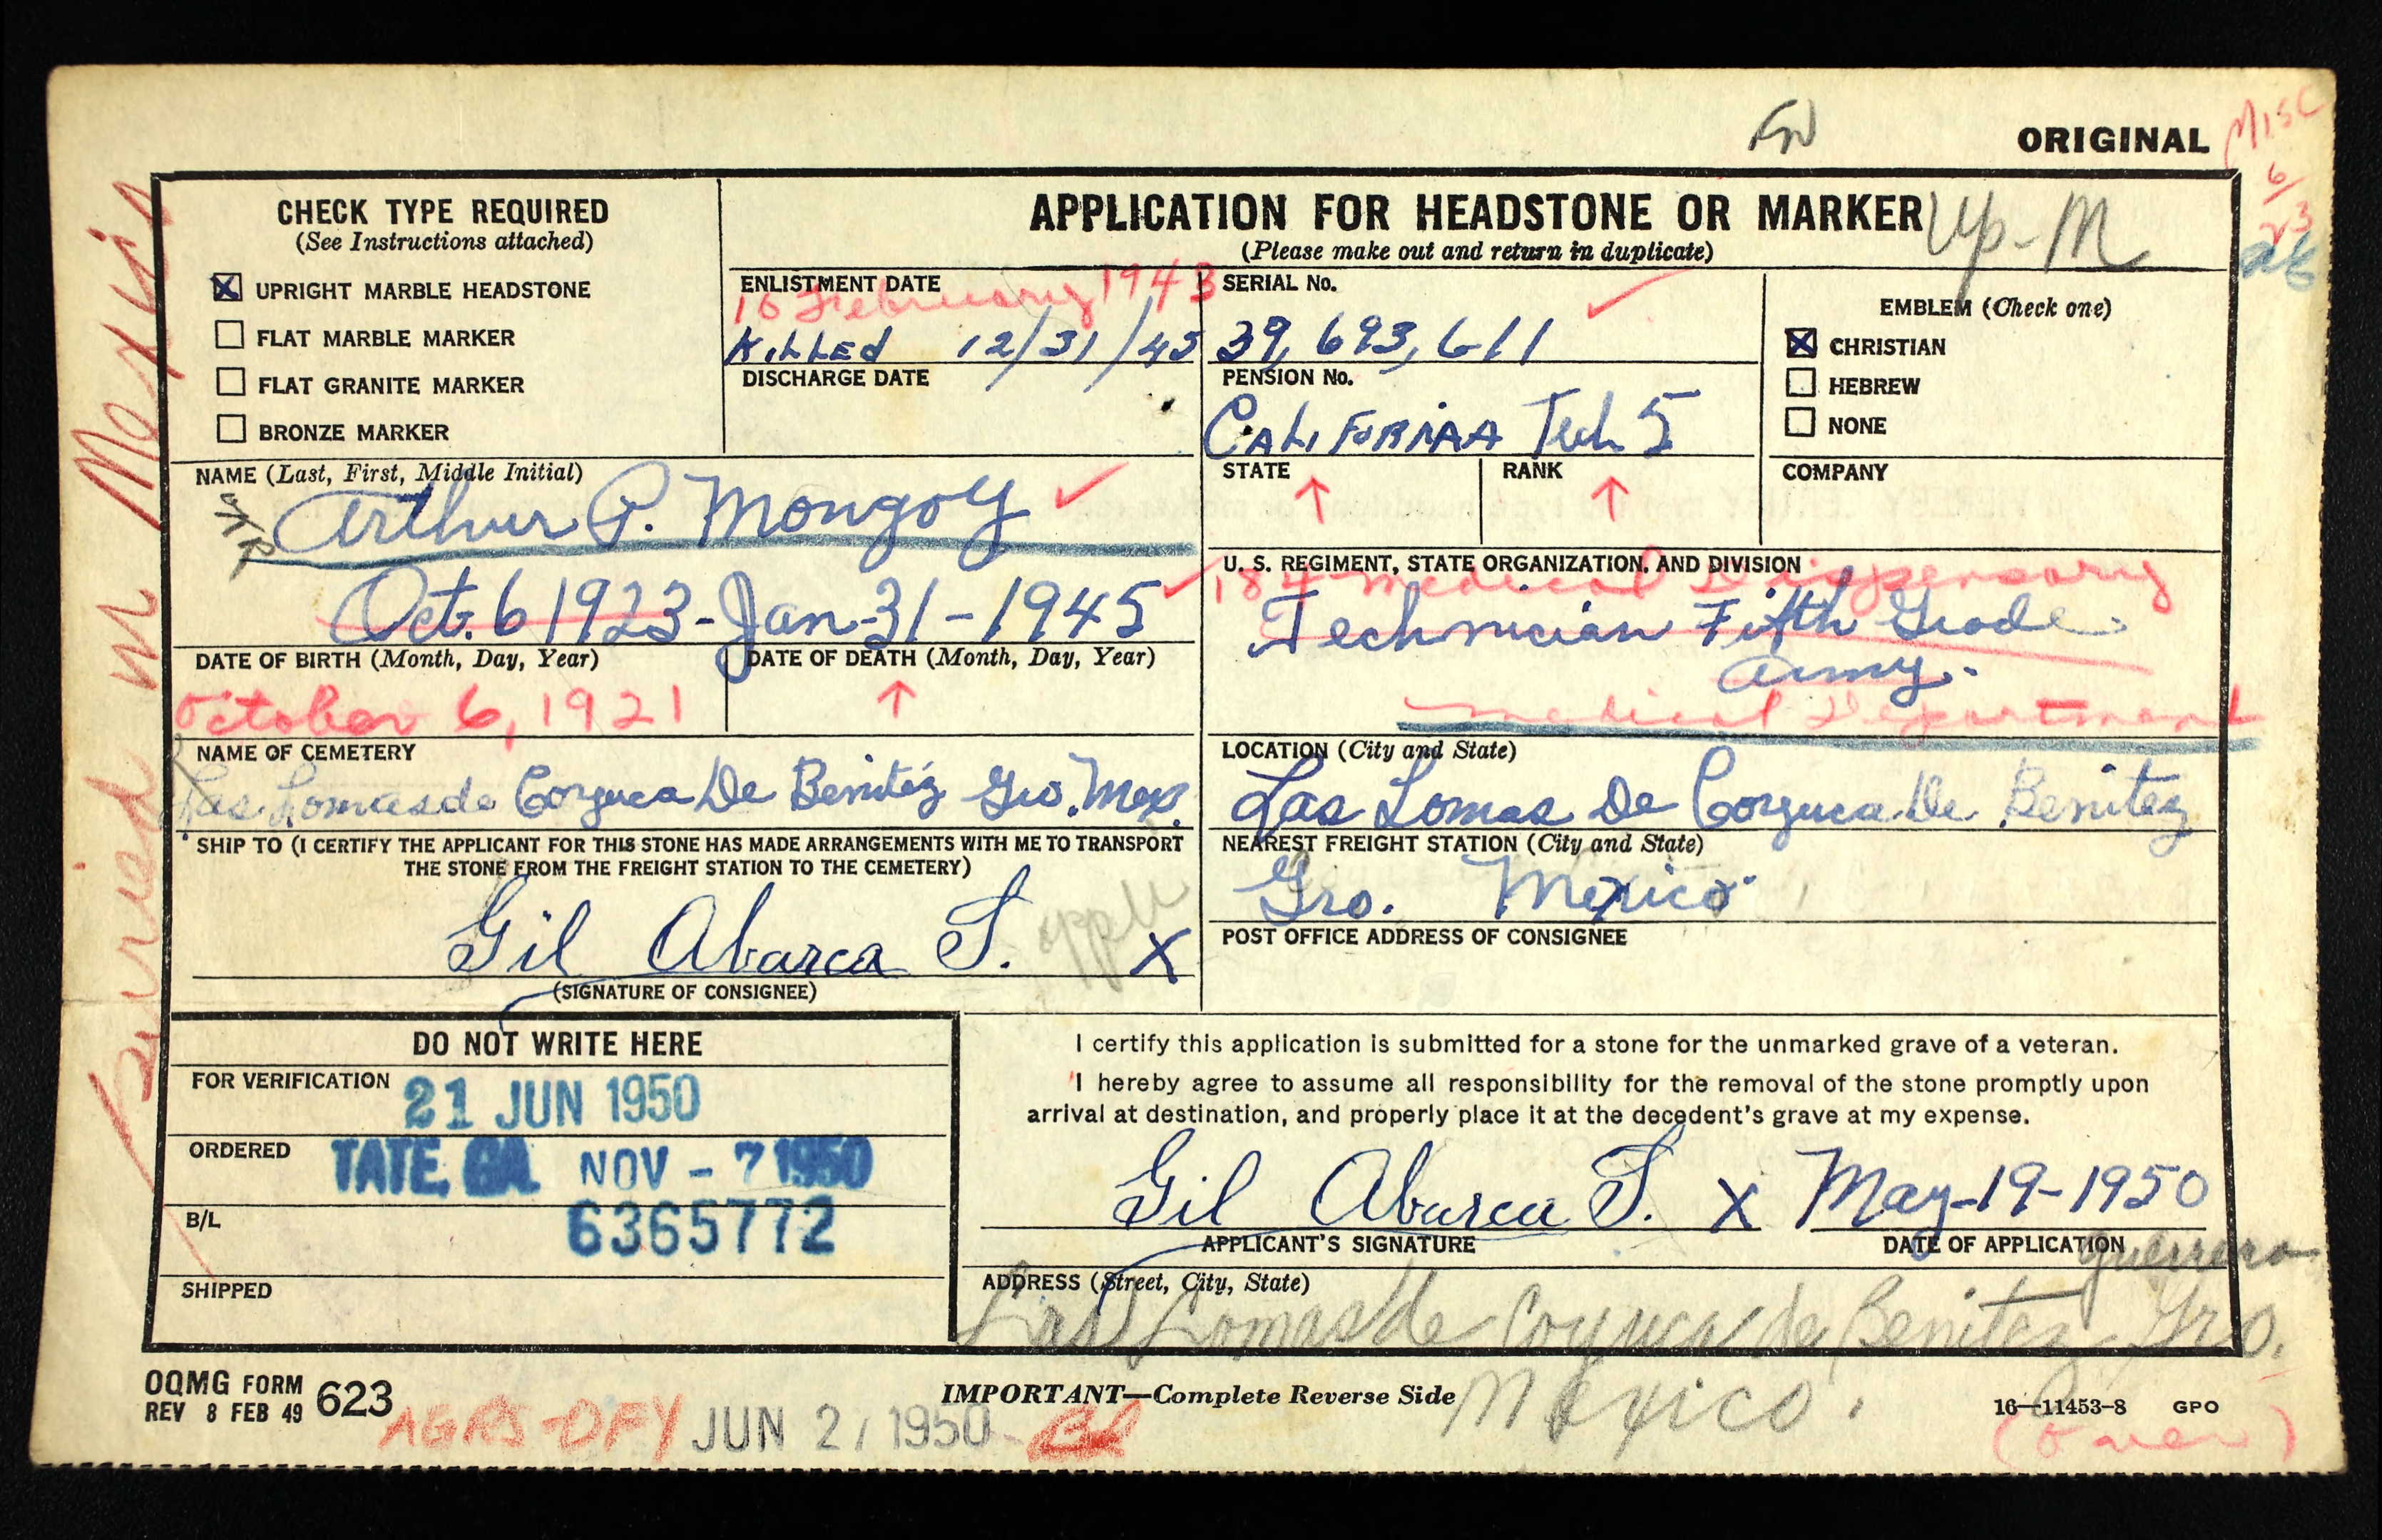 ORIGINAL
Misc
6/23
26
Buried in Mexico
CHECK TYPE REQUIRED
(See Instructions attached)
X UPRIGHT MARBLE HEADSTONE
FLAT MARBLE MARKER
FLAT GRANITE MARKER
BRONZE MARKER
APPLICATION FOR HEADSTONE OR MARKER Up-M
(Please make out and return in duplicate)
ENLISTMENT DATE
16 February 1943
KiLLEd 12/31/45
DISCHARGE DATE
SERIAL No.
39,693,611
PENSION No.
CALiFORNiA Tech 5
STATE
RANK
EMBLEM (Check one)
X CHRISTIAN
HEBREW
NONE
COMPANY
NAME (Last, First, Middle Initial)
Arthur P. Mongoy
Oct. 6 1923 - Jan-31-1945
DATE OF BIRTH (Month, Day, Year)
DATE OF DEATH (Month, Day, Year)
October 6, 1921
U. S. REGIMENT, STATE ORGANIZATION, AND DIVISION
184 Medical Dispensary
Technician Fifth Grade
Army.
Medical Department
NAME OF CEMETERY
Las Lomas de Coyuca De Benitez Gro. Mex.
LOCATION (City and State)
Las Lomas De Coyuca De Benitez
SHIP TO (I CERTIFY THE APPLICANT FOR THIS STONE HAS MADE ARRANGEMENTS WITH ME TO TRANSPORT
THE STONE FROM THE FREIGHT STATION TO THE CEMETERY)
NEAREST FREIGHT STATION (City and State)
Gro. Mexico
Gil Abarca S. X
(SIGNATURE OF CONSIGNEE)
POST OFFICE ADDRESS OF CONSIGNEE
DO NOT WRITE HERE
FOR VERIFICATION 21 JUN 1950
ORDERED TATE, GA. NOV - 7 1950
B/L 6365772
SHIPPED
I certify this application is submitted for a stone for the unmarked grave of a veteran.
I hereby agree to assume all responsibility for the removal of the stone promptly upon
arrival at destination, and properly place it at the decedent's grave at my expense.
Gil Abarca S. X May-19-1950
APPLICANT'S SIGNATURE
DATE OF APPLICATION
Guerrero
ADDRESS (Street, City, State)
Las Lomas de Coyuca de Benitez Gro.
Mexico.
OQMG FORM 623
REV 8 FEB 49
IMPORTANT—Complete Reverse Side
16—11453-8 GPO
AGRS-DFY JUN 21 1950
(Over)